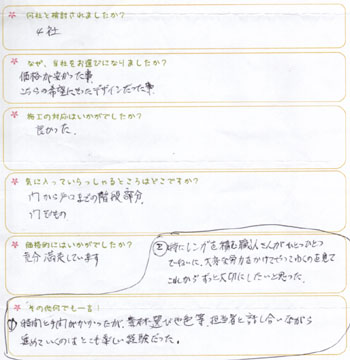 何社と検討されましたか？
4社
なぜ、当社をお選びになりましたか？
価格が安かった事。
こちらの希望にそったデザインだった事。
施工の対応はいかがでしたか？
良かった。
気に入っていらっしゃるところはどこですか？
門から戸口までの階段部分。
門そのもの
価格的にはいかがでしたか？
充分満足しています
その他何でも一言！
① 時間と手間がかかったが、素材選びや色等、担当者と話し合いながら
進めていくのはとても楽しい経験だった。
② 特にレンガを積む職人さんがひとつひとつ
ていねいに、大変な労力をかけて行うのを見て
これからずっと大切にしたいと思った。